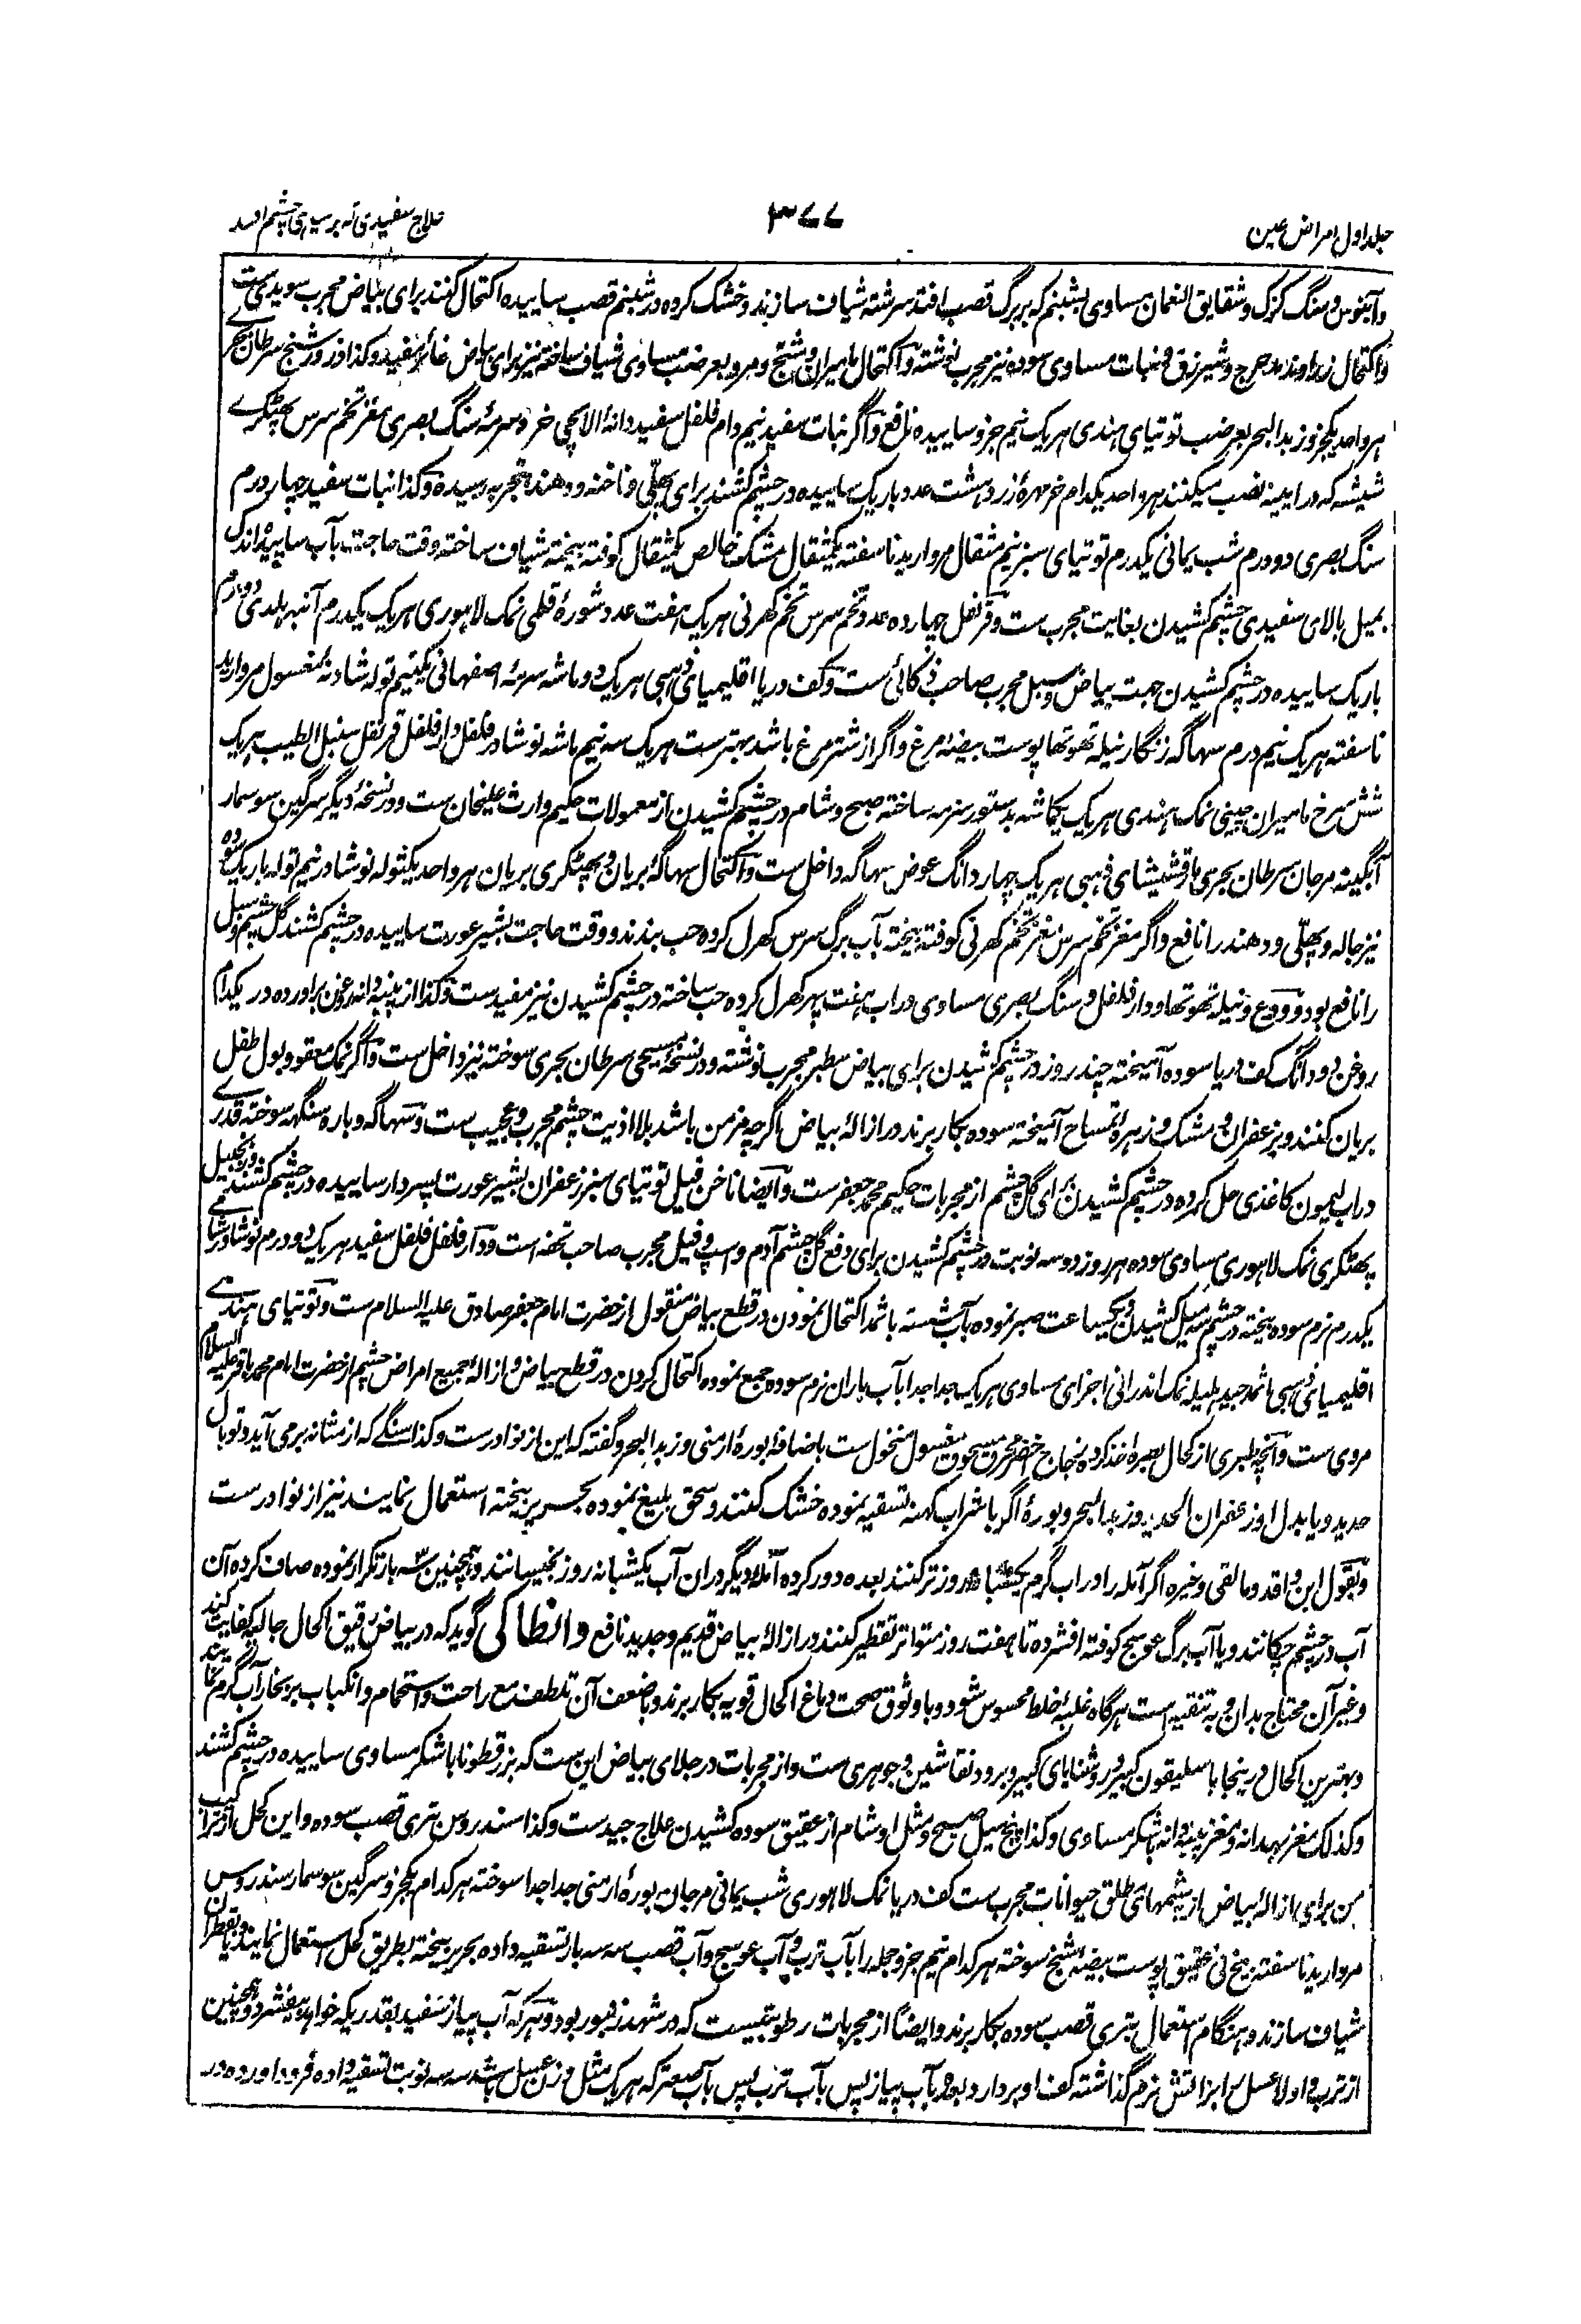 جلد اول امراض عین
۳۷۷
علاج سفیدی که بر سیاهی چشم افتد
و آبنوس و سنگ کزک و شقایق النعمان مساوی بشبنم که بر برگ قصب افتد سرشته شیاف سازند و خشک کرده در شبنم قصب ساییده اکتحال کنند برای بیاض مجرب سویدی ست
و اکتحال زراوند مدحرج و شیرزق و نبات مساوی سوده نیز مجرب نوشته و اکتحال مامیران و شنج و مر و بعر ضب مساوی شیاف ساخته نیز برای بیاض غائر مفید و کذا ذرور شنج سرطان بحری
هر واحد یکجزو زبد البحر بعر ضب توتیای هندی هر یک نیم جزو ساییده نافع و اگر نبات سفید نیم دام فلفل سفید دانه الاچی خرد سرمه سنگ بصری مغز تخم سرس پھٹکری
شیشه که در ایینه نصب میکنند هر واحد یکدام خرمهره زرد هشت عدد باریک ساییده در چشم کشند برای پھلی و ناخنه و دهند بتجربه رسیده و کذا نبات سفید چهار درم
سنگ بصری دو درم شب یمانی یکدرم توتیای سبز نیم مثقال مروارید ناسفته یکمثقال مشک خالص یکمثقال کوفته بیخته شیاف ساخته وقت حاجت بآب ساییده اندک
بمیل بالای سفیدی چشم کشیدن بغایت مجرب ست و قرنفل چهارده عدد تخم سرس تخم کهرنی هر یک هفت عدد شوره قلمی نمک لاهوری هر یک یکدرم آنبه هلدی دو درم
باریک ساییده در چشم کشیدن جهت بیاض و سبل مجرب صاحب ذکائی ست و کف دریا اقلیمیای ذهبی هر یک دو ماشه سرمه اصفهانی یکنیم توله شادنه مغسول مروارید
ناسفته هر یک نیم درم سهاگه زنگار نیله تھوتھا پوست بیضه مرغ و اگر از شترمرغ باشد بهترست هر یک سه نیم ماشه نوشادر فلفل دارفلفل قرنفل سنبل الطیب هر یک
شش سرخ مامیران چینی نمک هندی هر یک یکماشه بدستور سرمه ساخته صبح و شام در چشم کشیدن از معمولات حکیم وارث علیخان ست و در نسخه دیگر سرگین سوسمار
آبگینه مرجان سرطان بحری مارقشیشای ذهبی هر یک چهار دانگ عوض سهاگه داخل ست و اکتحال سهاگه بریان و پھٹکری بریان هر واحد یکتوله نوشادر نیم توله باریک سوده
نیز جاله و پھلی و دهند را نافع و اگر مغز تخم سرس مغز تخم کهرنی کوفته بیخته بآب برگ سرس کھرل کرده حب بندند و وقت حاجت بشیر عورت ساییده در چشم کشند گل چشم و سبل
را نافع بود و ودع و نیله تھوتھا و دارفلفل و سنگ بصری مساوی در اب هفت پهر کھرل کرده حب ساخته در چشم کشیدن نیز مفید ست و کذا از پنبه دانه روغن براورده در یکدام
روغن دو دانگ کف دریا سوده آمیخته چند روز در چشم کشیدن برای بیاض سطبر مجرب نوشته و در نسخه مسیحی سرطان بحری سوخته نیز داخل ست و اگر نمک معقود بول طفل
بریان کنند و بزعفران و مشک و زهره تمساح آمیخته سوده بکار برند در ازاله بیاض اگرچه مزمن باشد بلا اذیت چشم مجرب و عجیب ست و سهاگه و باره سنگهه سوخته قدری
در اب لیمون کاغذی حل کرده در چشم کشیدن برای گل چشم از مجربات حکیم محمد جعفر ست و ایضا ناخن فیل توتیای سبز زعفران بشیر عورت پسردار ساییده در چشم کشند و زنجبیل
پھٹکری نمک لاهوری مساوی سوده هر روز دو سه نوبت در چشم کشیدن برای دفع گل چشم آدم و اسپ و فیل مجرب صاحب تحفه است و دارفلفل فلفل سفید هر یک دو درم نوشادر شامی
یکدرم نرم سوده بیخته در چشم سه میل کشیدن و یکساعت صبر نموده بآب شسته باثمد اکتحال نمودن در قطع بیاض منقول از حضرت امام جعفر صادق علیه السلام ست و توتیای هندی
اقلیمیای ذهبی اثمد جید هلیله نمک اندرانی اجزای مساوی هر یک جدا جدا بآب باران نرم سوده جمع نموده اکتحال کردن در قطع بیاض و ازاله جمیع امراض چشم از حضرت امام محمد باقر علیه السلام
مروی ست و آنچه طبری از کحال بصره اخذ کرده زجاج اخضر محرق مسحوق مغسول منخول ست باضافه بوره ارمنی و زبد البحر و گفته که این از نوادر ست و کذا سنگے که از مثانه برمی آید و توبال
حدید و یا بدل او زعفران الحدید و زبد البحر و بوره اگر با شراب کهنه تسقیه نموده خشک کنند و سحق بلیغ نموده بحریر بیخته استعمال نمایند نیز از نوادر ست
و بقول ابن واقد و مالقی وغیره اگر آمله را در اب گرم یکشبانه روز تر کنند بعده دور کرده آمله دیگر در ان آب یکشبانه روز بخیسانند و همچنین سه بار تکرار نموده صاف کرده آن
آب در چشم چکانند و یا آب برگ عوسج کوفته افشرده تا هفت روز متواتر تقطیر کنند در ازاله بیاض قدیم و جدید نافع و انطاکی گوید که در بیاض رقیق اکحال جالیه کفایت کند
و غیر آن محتاج بدان و به تنقیه است هرگاه غلبه خلط محسوس شود و با وثوق صحت دماغ اکحال قویه بکار برند و با ضعف آن تلطف مع راحت و استحمام و انکباب بر بخار آب گرم نمایند
و بهترین اکحال درینجا باسلیقون کبیر و روشنایای کبیر و برود نقاشین و جوهری ست و از مجربات در جلای بیاض این ست که بزرقطونا باشکر مساوی ساییده در چشم کشند
و کذلک مغز بهدانه و مغز پنبه دانه باشکر مساوی و کذا زنجبیل صبح و مثل او شام از عقیق سوده کشیدن علاج جید ست و کذا سندروس بتری قصب سوده و این کحل از تراکیب
من برای ازاله بیاض از چشمهای مطلق حیوانات مجرب ست کف دریا نمک لاهوری شب یمانی مرجان بوره ارمنی جدا جدا سوخته هر کدام یکجزو سرگین سوسمار سندروس
مروارید ناسفته بیخ نی عقیق پوست بیضه شنج سوخته هر کدام نیم جزو جمله را بآب ترب و آب عوسج و آب قصب سه سه بار تسقیه داده بحریر بیخته بطریق کحل استعمال نمایند و یا بقطران
شیاف سازند و بهنگام استعمال بتری قصب سوده بکار برند و ایضاً از مجربات رطوبتیست که در شهد زنبور بود و سرکه آب پیاز سفید بقدریکه خواهد بیفشرد و همچنین
از ترب و اولا عسل را بر اتش نرم گذاشته کف او بردارد و بعد بآب پیاز پس بآب ترب پس بآب صعتر که هر یک مثل وزن عسل باشد سه سه نوبت تسقیه داده فرود آورده در